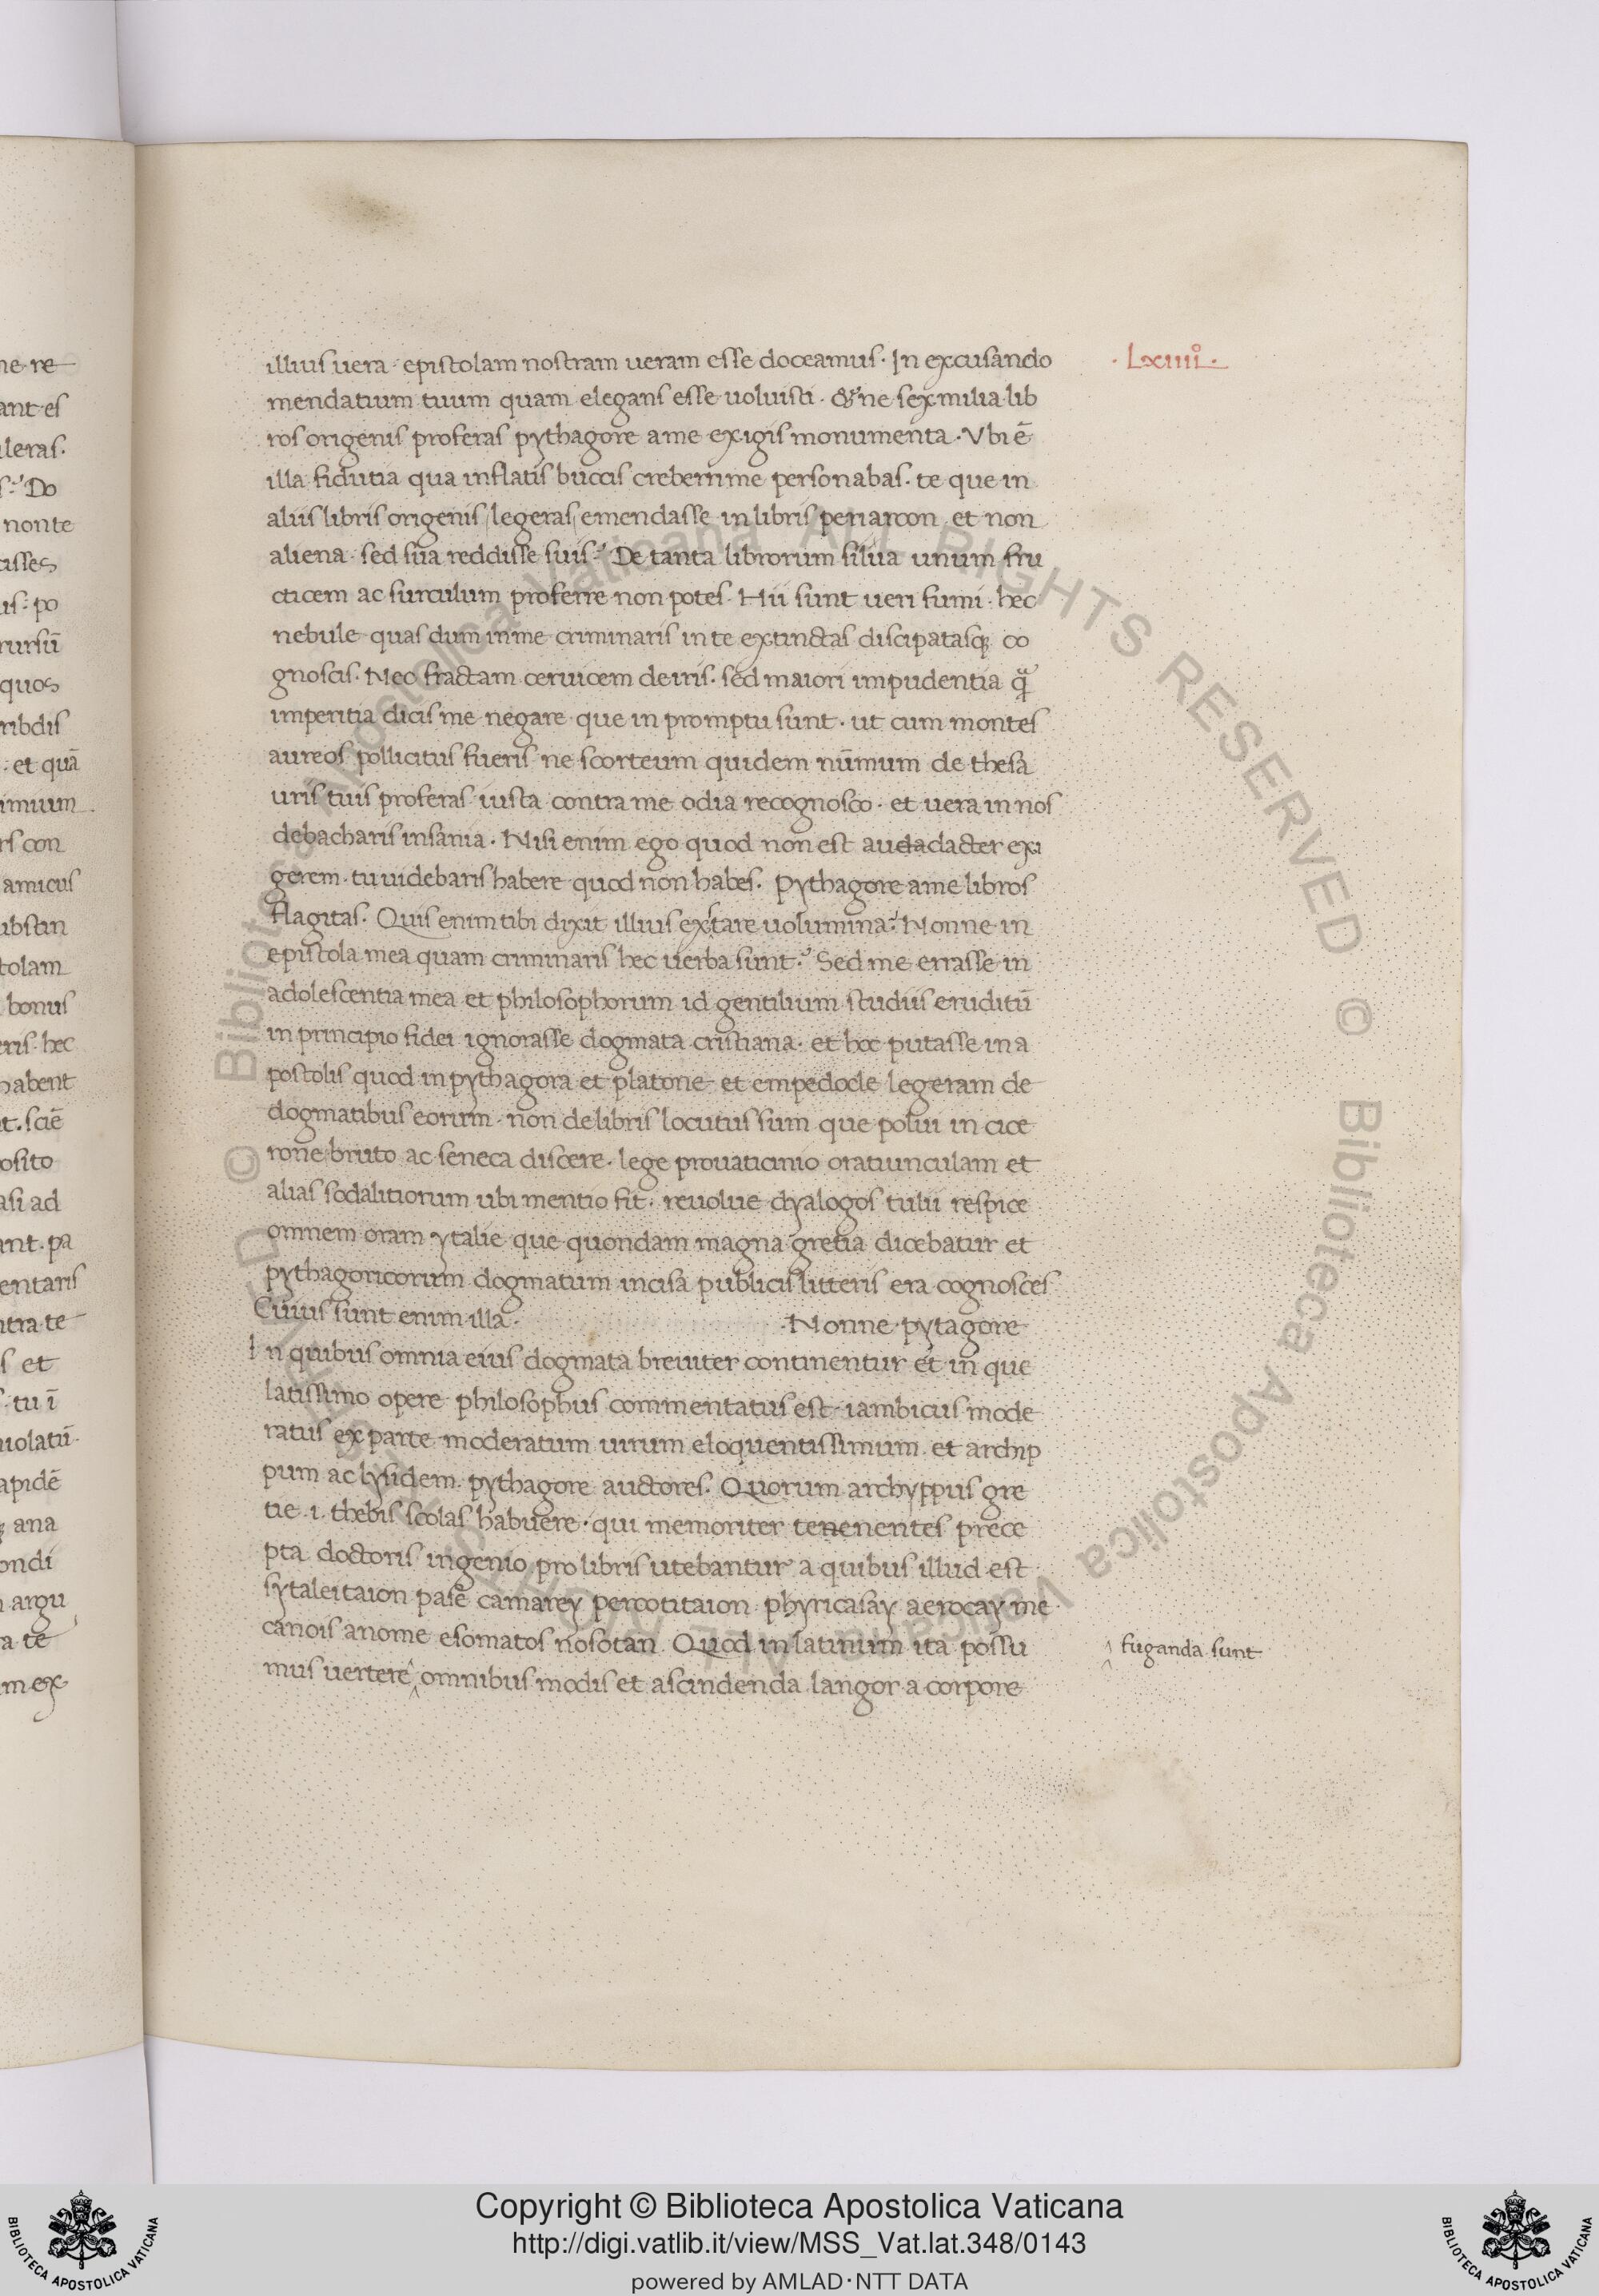 illius uera · epistolam nostram ueram esse doceamus · In excusando
· Lxiiiiº ·
mendatium tuum quam elegans esse uoluisti · ne sex milia lib
ros origenis proferas pythagore a me exigis monumenta · Vbi ē
illa fidutia qua inflatis buccis creberrime personabas · te que in
aliis libris origenis legeras emendasse in libris periarcon et non
aliena · sed sua reddisse suis · De tanta librorum silua unum fru
cticem ac surculum proferre non potes · Hii sunt ueri fumi · hec
nebule quas dum in me criminaris in te extinctas discipatasq; co
gnoscis · Nec fractam ceruicem deiris · sed maiori impudentia
imperitia dicis me negare que in promptu sunt · ut cum montes
aureos pollicitus fueris ne scorteum quidem nūmum de thesa
uris tuis proferas · iusta contra me odia recognosco · et uera in nos
debacharis insania · Nisi enim ego quod non est audadacter exi
gerem · tu uidebaris habere quod non habes · Pythagore a me libros
flagitas · Quis enim tibi dixit illius extare uolumina · Nonne in
epistola mea quam criminaris hec uerba sunt · Sed me errasse in
adolescentia mea et philosophorum id gentilium studiis eruditū
in principio fidei ignorasse dogmata cristiana · et hoc putasse in a
postolis quod in pythagora et platone et empedocle legeram de
dogmatibus eorum · non de libris locutus sum que polui in cice
rone bruto ac seneca discere · lege prouaticinio oratiunculam et
alias sodalitiorum ubi mentio fit · reuolue dyalogos tulii respice
omnem oram ytalie que quondam magna gretia dicebatur et
pythagoricorum dogmatum incisa publicis litteris era cognosces
Cuius sunt enim illa · · Nonne pytagore
In quibus omnia eius dogmata breuiter continentur et in que
latissimo opere philosophus commentatus est · iambicus mode
ratus ex parte moderatum uirum eloquentissimum et archip
pum ac lysidem pythagore auctores · Quorum archyppus gre
tie · i · thebis scolas habuere · qui memoriter tenenentes prece
pta doctoris ingenio pro libris utebantur a quibus illud est
sytaleitaion pase camarey percotitaion phyricasay aerocay me
canois anome esomatos nosotan Quod in latinum ita possu
mus uertere omnibus modis et ascindenda langor a corpore
fuganda sunt
Copyright © Biblioteca Apostolica Vaticana
http://digi.vatlib.it/view/MSS_Vat.lat.348/0143
powered by AMLAD·NTT DATA